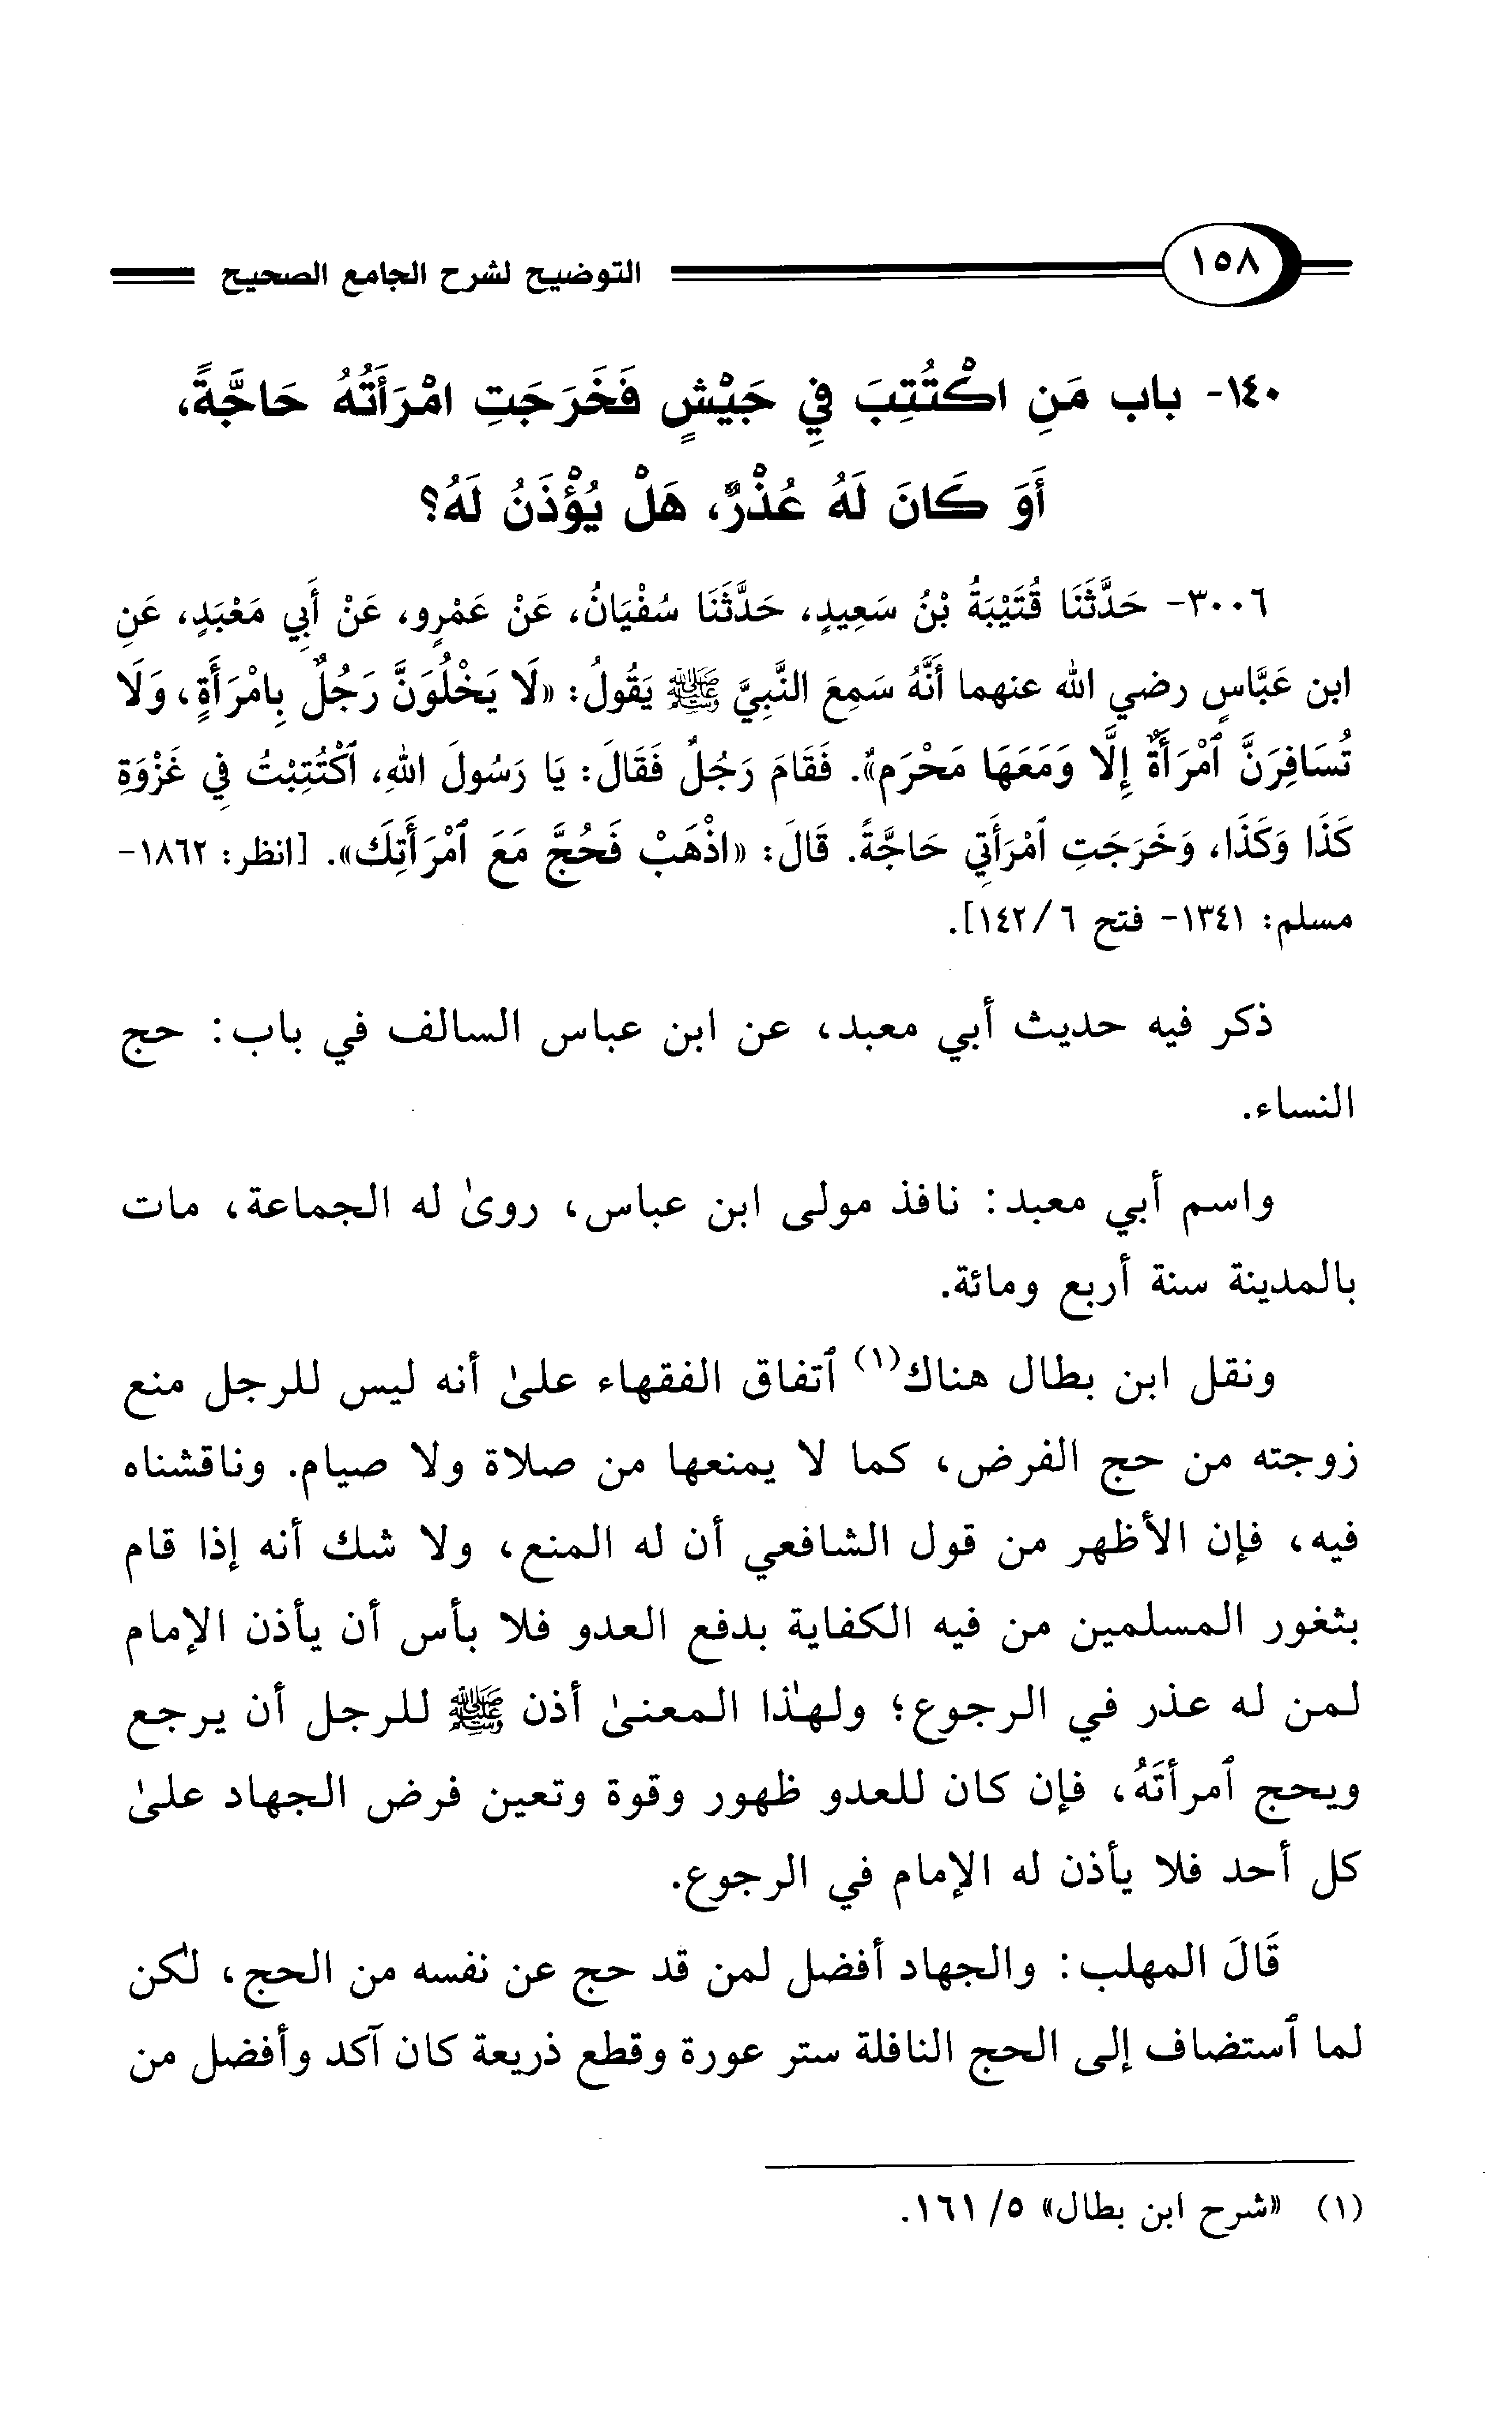 ١٥٨ التوضيح لشرح الجامع الصحيح
١٤٠- باب مَنِ اكْتُتِبَ فِي جَيْشٍ فَخَرَجَتِ امْرَأَتُهُ حَاجَّةً،
أَوَ كَانَ لَهُ عُذْرٌ، هَلْ يُؤْذَنُ لَهُ؟
٣٠٠٦- حَدَّثَنَا قُتَيْبَةُ بْنُ سَعِيدٍ، حَدَّثَنَا سُفْيَانُ، عَنْ عَمْرٍو، عَنْ أَبِي مَعْبَدٍ، عَنِ
ابن عَبَّاسٍ رضي الله عنهما أَنَّهُ سَمِعَ النَّبِيَّ ﷺ يَقُولُ: «لَا يَخْلُوَنَّ رَجُلٌ بِامْرَأَةٍ، وَلَا
تُسَافِرَنَّ ٱمْرَأَةٌ إِلَّا وَمَعَهَا مَحْرَم». فَقَامَ رَجُلٌ فَقَالَ: يَا رَسُولَ اللهِ، ٱكْتُتِبْتُ فِي غَزْوَةِ
كَذَا وَكَذَا، وَخَرَجَتِ ٱمْرَأَتِي حَاجَّةً. قَالَ: «اذْهَبْ فَحُجَّ مَعَ ٱمْرَأَتِكَ». [انظر: ١٨٦٢-
مسلم: ١٣٤١- فتح ٦/ ١٤٢].
ذكر فيه حديث أبي معبد، عن ابن عباس السالف في باب: حج
النساء.
واسم أبي معبد: نافذ مولى ابن عباس، روىٰ له الجماعة، مات
بالمدينة سنة أربع ومائة.
ونقل ابن بطال هناك(١) ٱتفاق الفقهاء علىٰ أنه ليس للرجل منع
زوجته من حج الفرض، كما لا يمنعها من صلاة ولا صيام. وناقشناه
فيه، فإن الأظهر من قول الشافعي أن له المنع، ولا شك أنه إذا قام
بثغور المسلمين من فيه الكفاية بدفع العدو فلا بأس أن يأذن الإمام
لمن له عذر في الرجوع؛ ولهٰذا المعنىٰ أذن ﷺ للرجل أن يرجع
ويحج ٱمرأتَهُ، فإن كان للعدو ظهور وقوة وتعين فرض الجهاد علىٰ
كل أحد فلا يأذن له الإمام في الرجوع.
قَالَ المهلب: والجهاد أفضل لمن قد حج عن نفسه من الحج، لٰكن
لما ٱستضاف إلى الحج النافلة ستر عورة وقطع ذريعة كان آكد وأفضل من
(١) «شرح ابن بطال» ٥/ ١٦١.